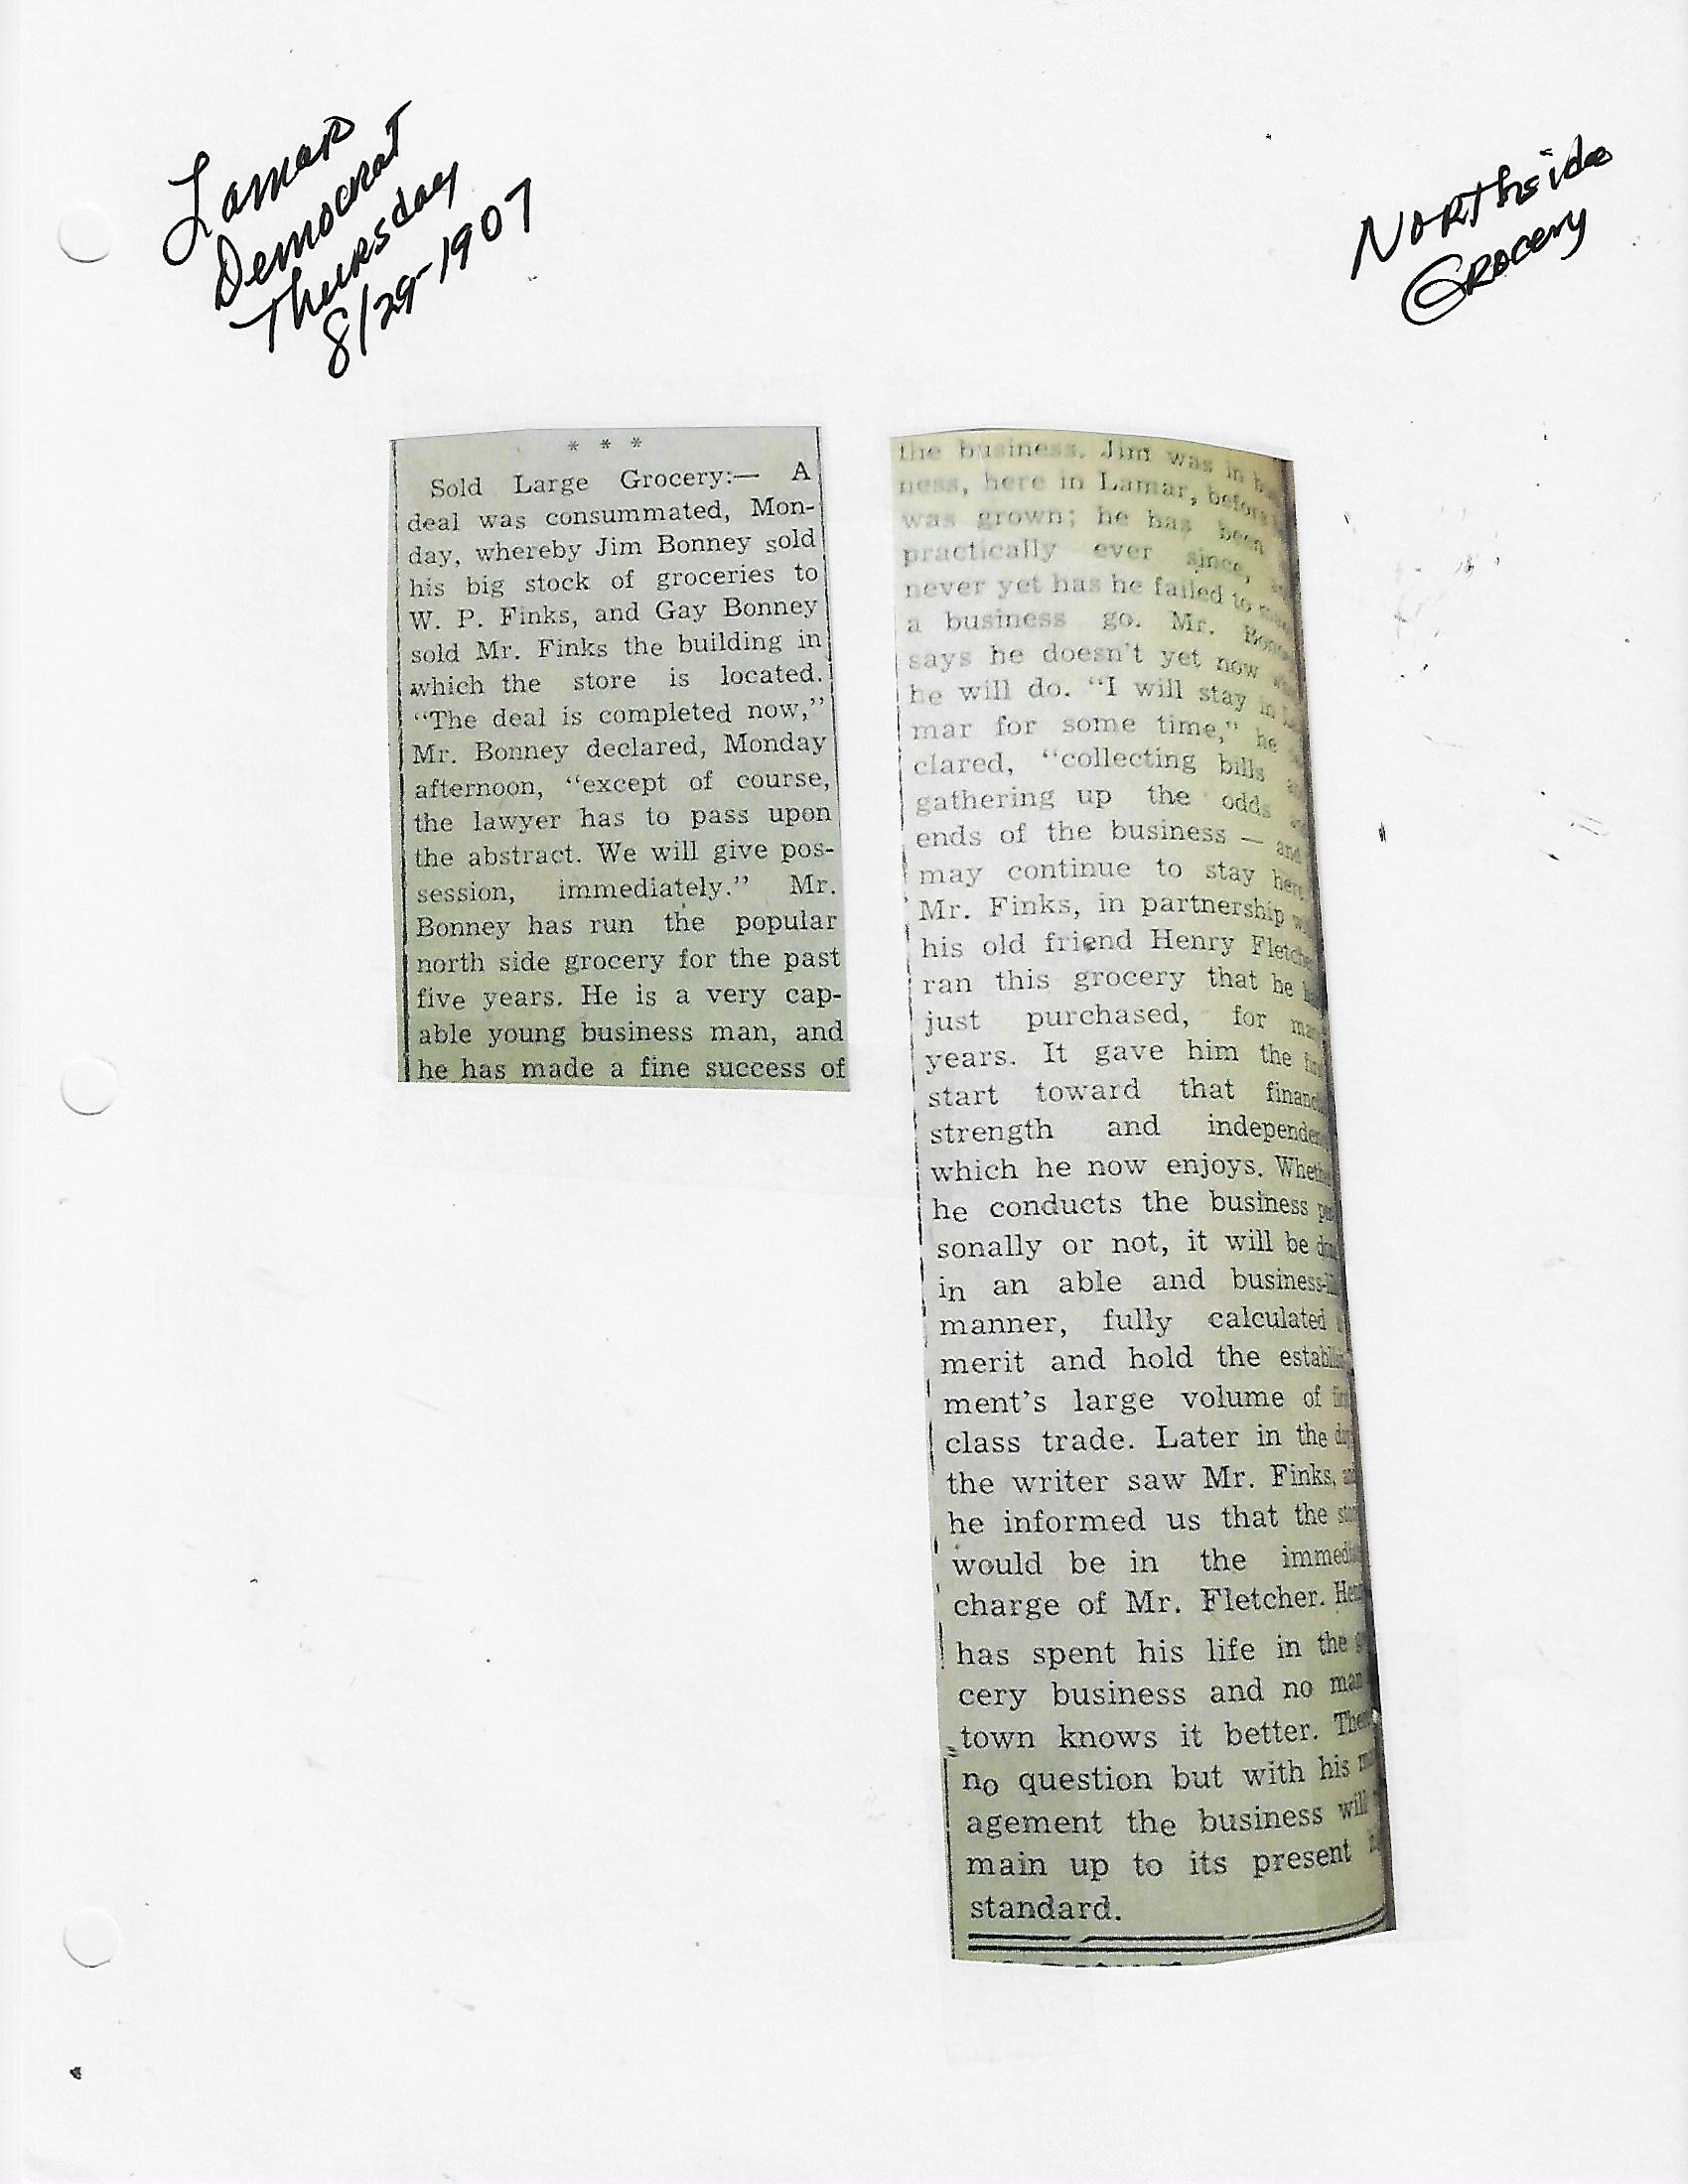 Lamar
Democrat
Thursday
8/29-1907
Northside
Grocery
* * *
Sold Large Grocery:— A
deal was consummated, Mon-
day, whereby Jim Bonney sold
his big stock of groceries to
W. P. Finks, and Gay Bonney
sold Mr. Finks the building in
which the store is located.
“The deal is completed now,”
Mr. Bonney declared, Monday
afternoon, “except of course,
the lawyer has to pass upon
the abstract. We will give pos-
session, immediately.” Mr.
Bonney has run the popular
north side grocery for the past
five years. He is a very cap-
able young business man, and
he has made a fine success of
the business. Jim was in
ness, here in Lamar, before
was grown; he has been
practically ever since,
never yet has he failed to
a business go. Mr.
says he doesn't yet now
he will do. “I will stay in
mar for some time,” he
clared, “collecting bills
gathering up the odds
ends of the business — and
may continue to stay here.
Mr. Finks, in partnership
his old friend Henry
ran this grocery that he
just purchased, for
years. It gave him the
start toward that
strength and
which he now enjoys.
he conducts the business
sonally or not, it will be
in an able and
manner, fully calculated
merit and hold the
ment's large volume of
class trade. Later in the
the writer saw Mr. Finks,
he informed us that the
would be in the
charge of Mr. Fletcher.
has spent his life in the
cery business and no man
town knows it better.
no question but with his
agement the business will
main up to its present
standard.